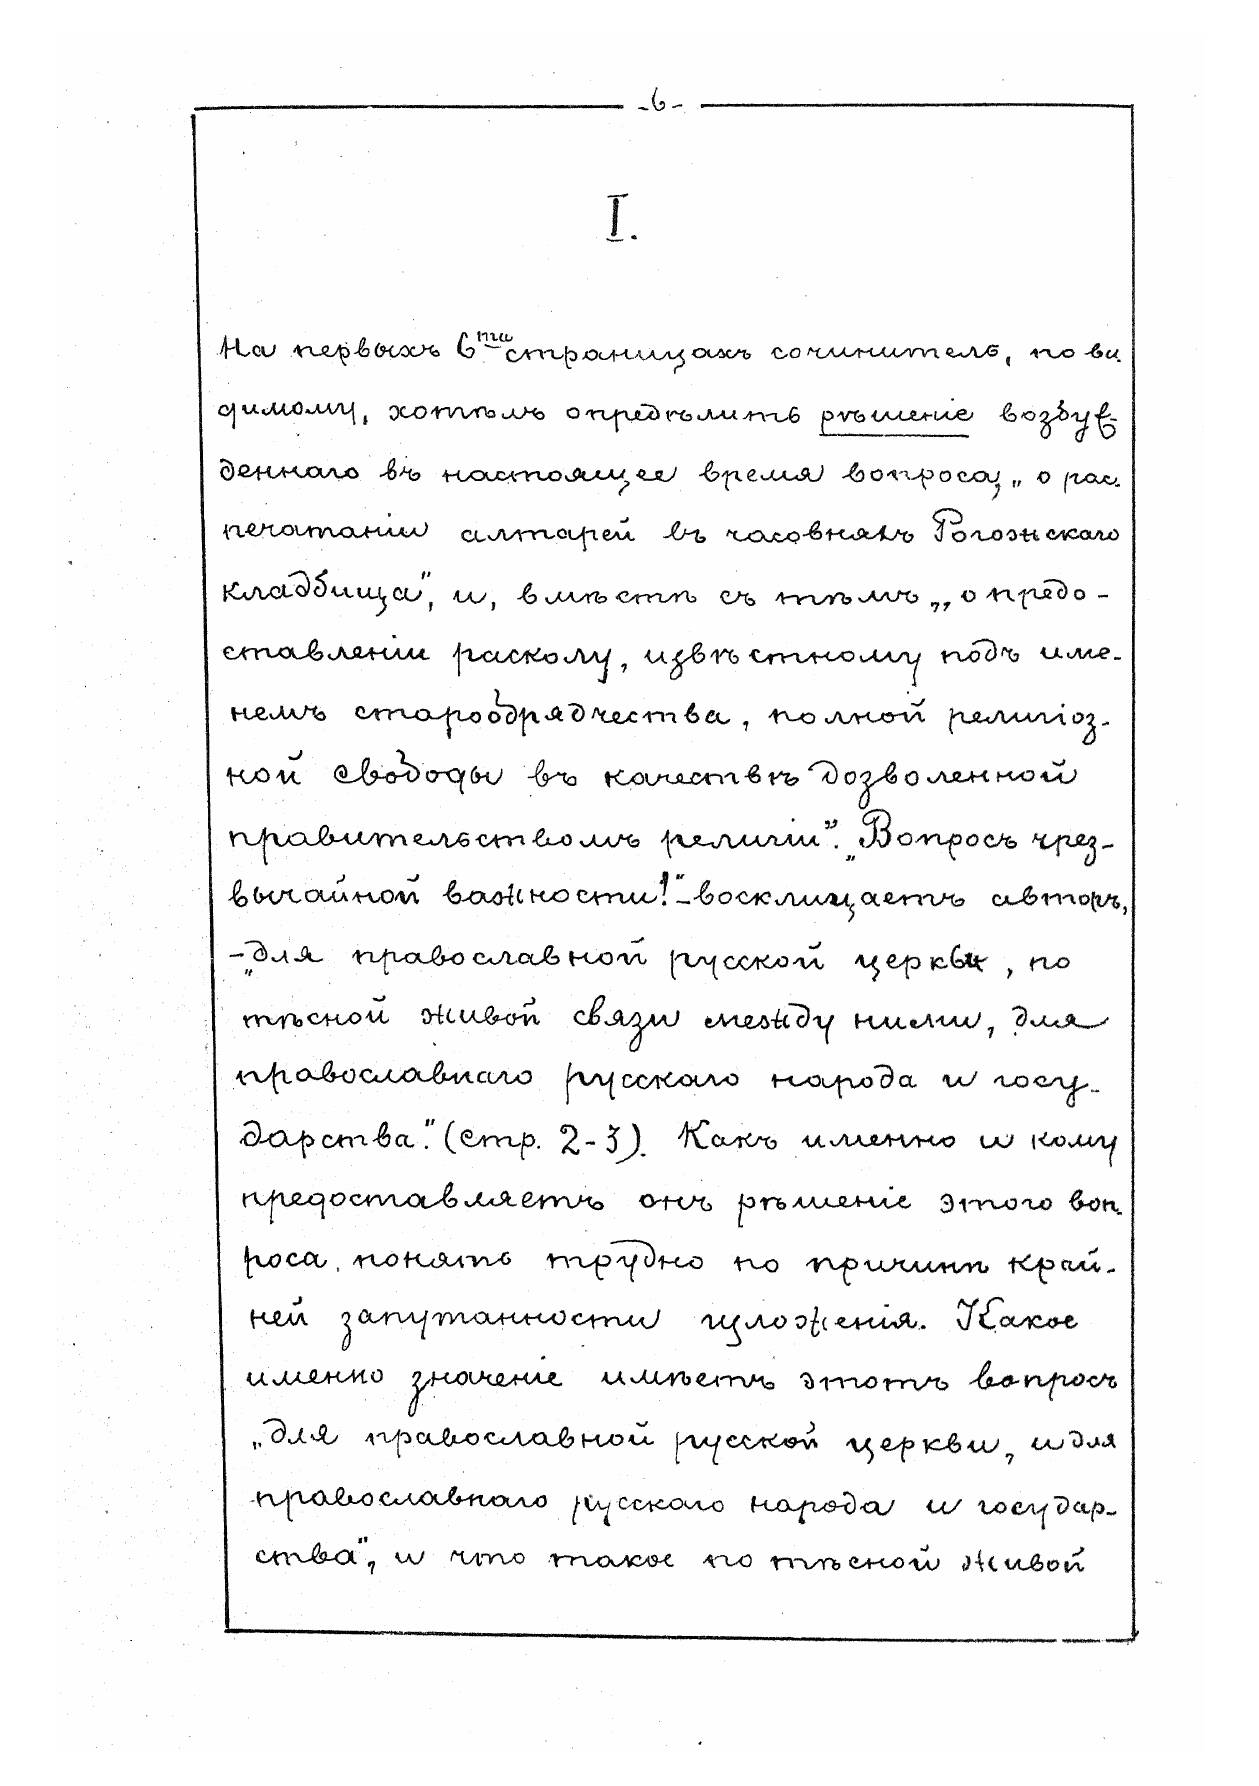 -6-
I.
На первыхъ 6ти страницахъ сочинитель, по ви-
димому, хотѣлъ опредѣлить рѣшеніе возбуж-
деннаго въ настоящее время вопроса, „о рас-
печатаніи алтарей въ часовняхъ Рогожскаго
кладбища", и, вмѣстѣ съ тѣмъ „о предо-
ставленіи расколу, извѣстному подъ име-
немъ старообрядчества, полной религіоз-
ной свободы въ качествѣ дозволенной
правительствомъ религіи". „Вопросъ чрез-
вычайной важности!"-восклицаетъ авторъ,
-„для православной русской церкви, по
тѣсной живой связи между ними, для
православнаго русскаго народа и госу-
дарства." (стр. 2-3). Какъ именно и кому
предоставляетъ онъ рѣшеніе этого воп-
роса, понять трудно по причинѣ край-
ней запутанности изложенія. Какое
именно значеніе имѣетъ этотъ вопросъ
„для православной русской церкви, и для
православнаго русскаго народа и государ-
ства", и что такое по тѣсной живой